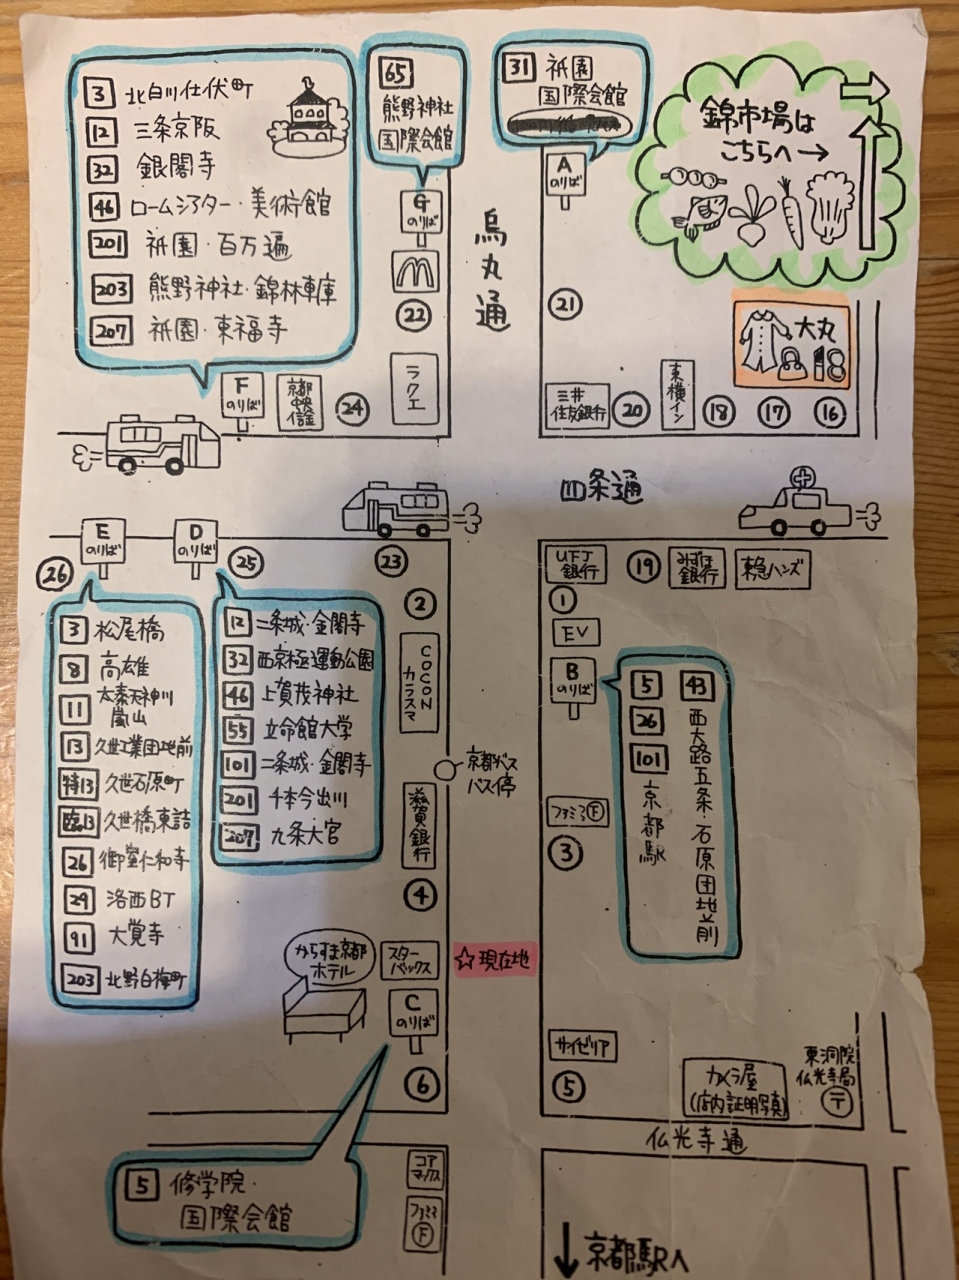 3 北白川仕伏町
12 三条京阪
32 銀閣寺
46 ロームシアター・美術館
201 祇園・百万遍
203 熊野神社・錦林車庫
207 祇園・東福寺
65
熊野神社
国際会館
31 祇園
国際会館
錦市場は
こちらへ→
A
のりば
G
のりば
烏丸通
22
21
大丸
ラクエ
F
のりば
京都中央信金
24
三井
住友銀行
20
東横イン
18
17
16
四条通
E
のりば
D
のりば
26
25
23
UFJ
銀行
19
みずほ
銀行
東急ハンズ
3 松尾橋
8 高雄
11 太秦天神川
嵐山
13 久世工業団地前
特13 久世石原町
臨13 久世橋東詰
26 御室仁和寺
29 洛西BT
91 大覚寺
203 北野白梅町
12 二条城・金閣寺
32 西京極運動公園
46 上賀茂神社
55 立命館大学
101 二条城・金閣寺
201 千本今出川
207 九条大宮
2
COCON
カラスマ
1
EV
B
のりば
5
26
101
京都駅
43
西大路五条・石原団地前
京都バス
バス停
滋賀銀行
ファミマ F
3
4
からすま京都
ホテル
スター
バックス
☆現在地
C
のりば
6
サイゼリア
5
カメラ屋
(店内証明写真)
東洞院
仏光寺局
〒
仏光寺通
5 修学院・
国際会館
コア
マックス
ファミマ
F
↓京都駅へ